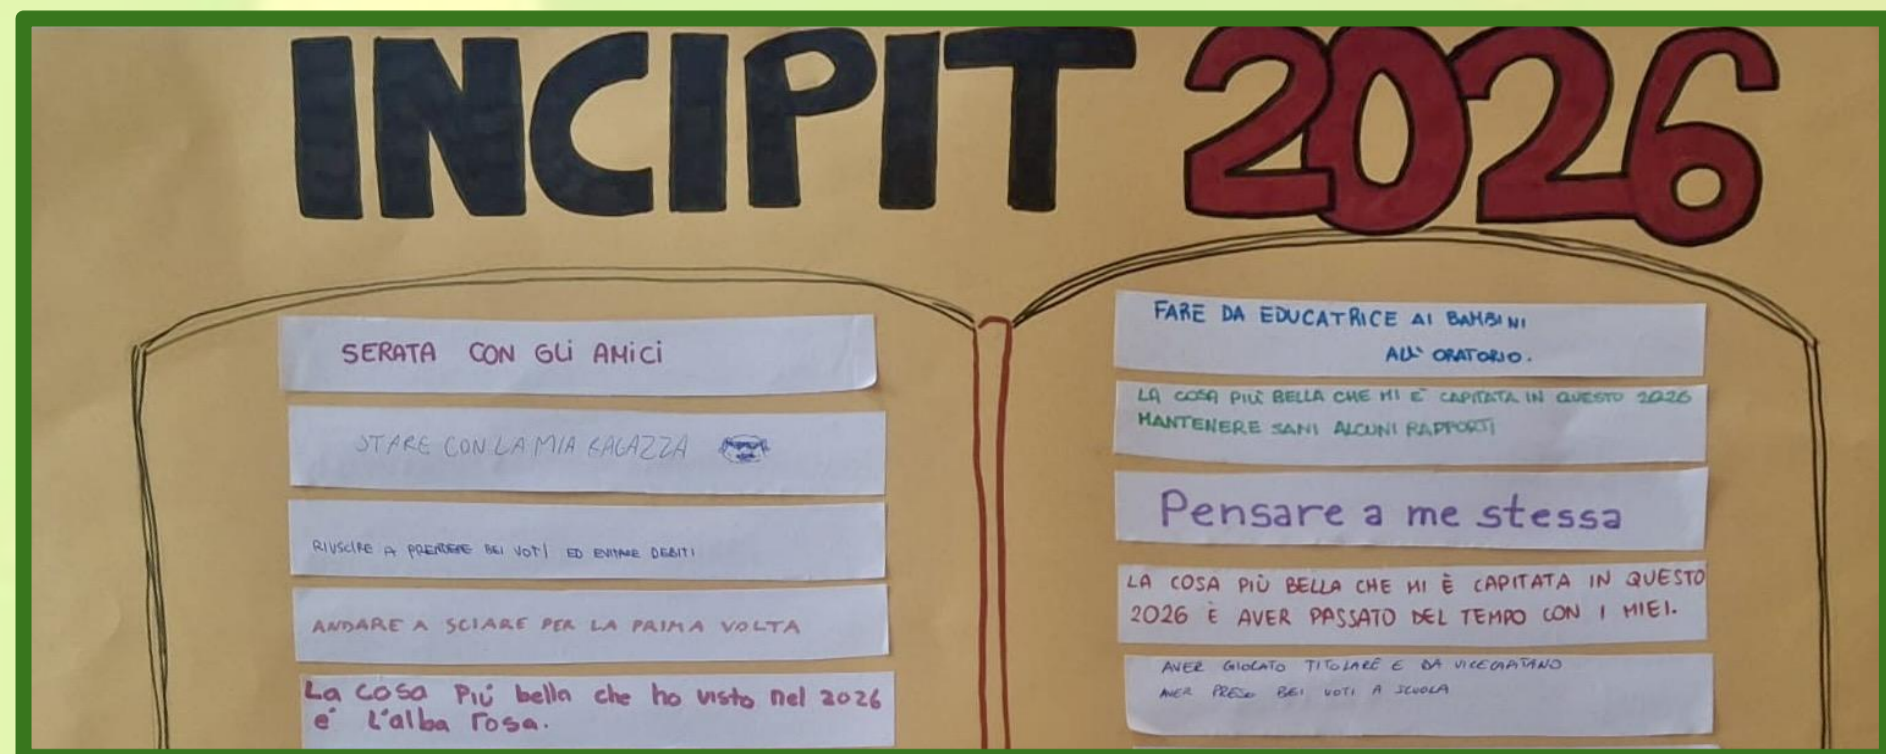 INCIPIT 2026
SERATA CON GLI AMICI
STARE CON LA MIA RAGAZZA
RIUSCIRE A PRENDERE BEI VOTI ED EVITARE DEBITI
ANDARE A SCIARE PER LA PRIMA VOLTA
La cosa Più bella che ho visto nel 2026
e' L'alba rosa.
FARE DA EDUCATRICE AI BAMBINI
ALL' ORATORIO.
LA COSA PIÙ BELLA CHE MI È CAPITATA IN QUESTO 2026
MANTENERE SANI ALCUNI RAPPORTI
Pensare a me stessa
LA COSA PIÙ BELLA CHE MI È CAPITATA IN QUESTO
2026 È AVER PASSATO DEL TEMPO CON I MIEI.
AVER GIOCATO TITOLARE E DA VICECAPITANO
AVER PRESO BEI VOTI A SCUOLA